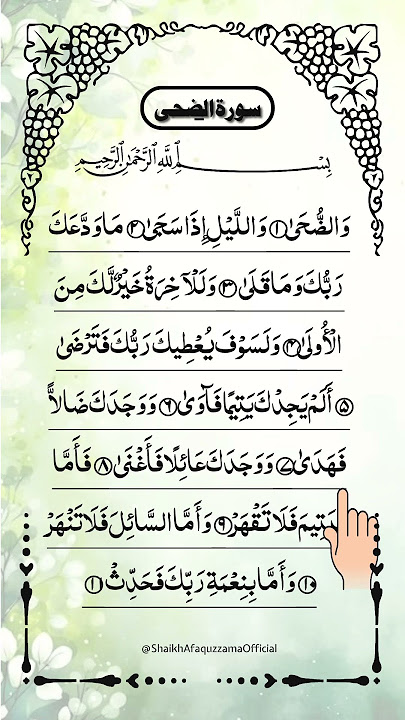 سورة الضحى
بِسْمِ اللَّهِ الرَّحْمَٰنِ الرَّحِيمِ
وَالضُّحَىٰ ۝١ وَاللَّيْلِ إِذَا سَجَىٰ ۝٢ مَا وَدَّعَكَ
رَبُّكَ وَمَا قَلَىٰ ۝٣ وَلَلْآخِرَةُ خَيْرٌ لَّكَ مِنَ
الْأُولَىٰ ۝٤ وَلَسَوْفَ يُعْطِيكَ رَبُّكَ فَتَرْضَىٰ
۝٥ أَلَمْ يَجِدْكَ يَتِيمًا فَآوَىٰ ۝٦ وَوَجَدَكَ ضَالًّا
فَهَدَىٰ ۝٧ وَوَجَدَكَ عَائِلًا فَأَغْنَىٰ ۝٨ فَأَمَّا
الْيَتِيمَ فَلَا تَقْهَرْ ۝٩ وَأَمَّا السَّائِلَ فَلَا تَنْهَرْ
۝١٠ وَأَمَّا بِنِعْمَةِ رَبِّكَ فَحَدِّثْ ۝١١
@ShaikhAfaquzzamaOfficial